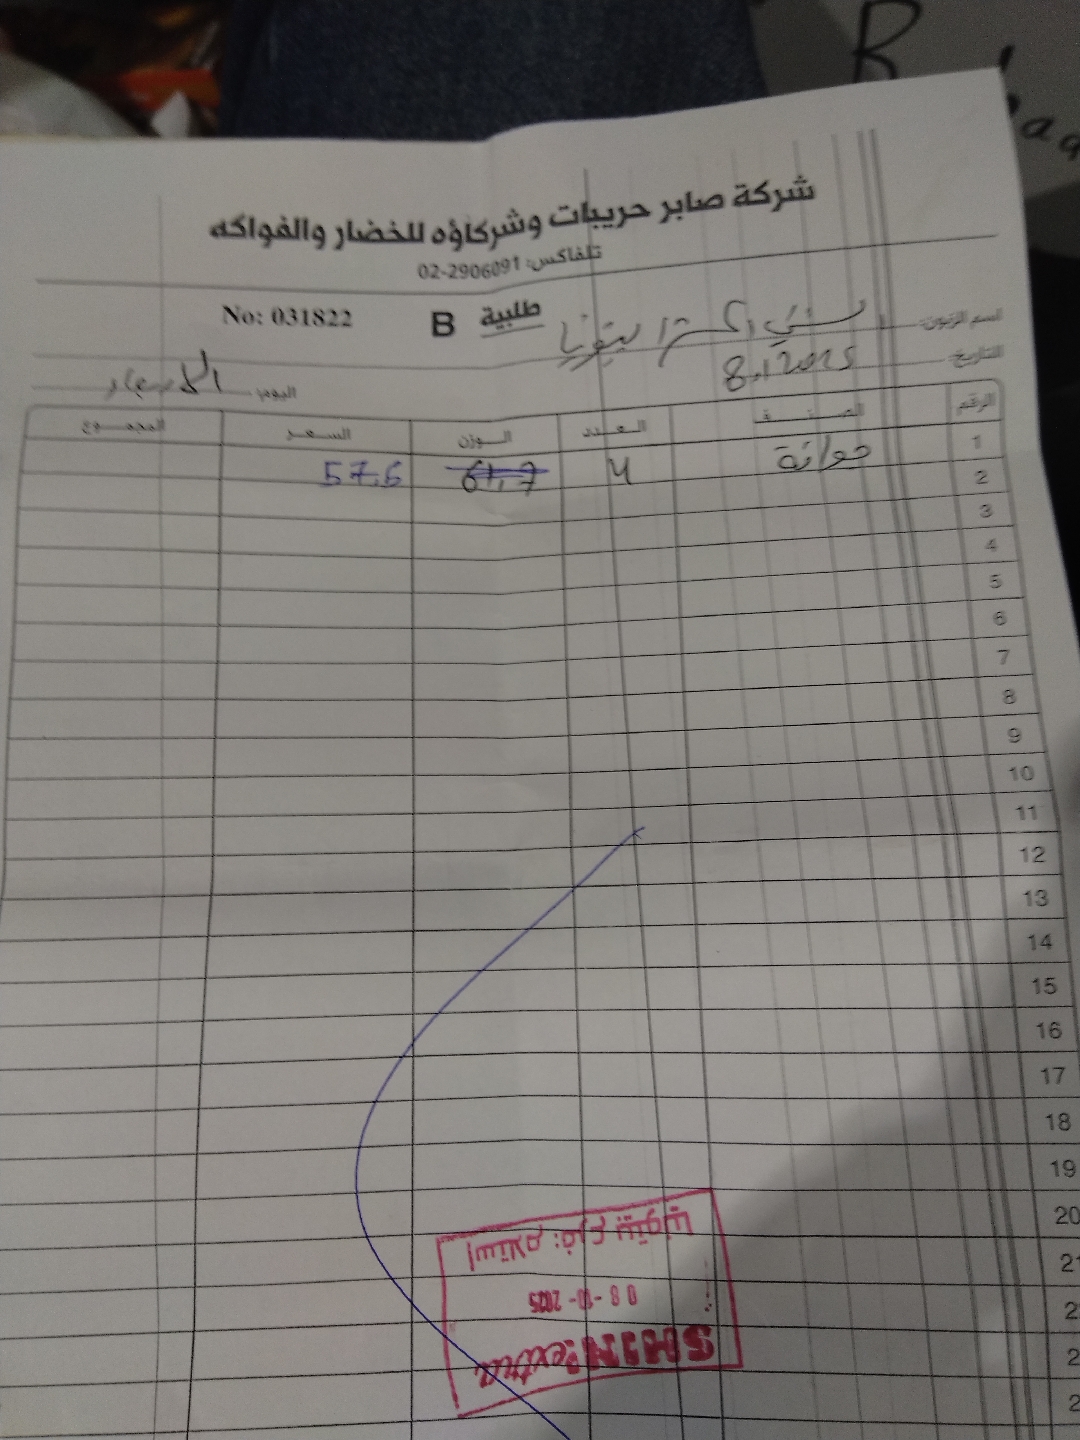 B
شركة صابر حريبات وشركاؤه للخضار والفواكه
تلفاكس: 02-2906091
No: 031822
طلبية B
اسم الزبون:
التاريخ:
اليوم: الاربعاء
الرقم الصنف العدد الوزن السعر المجموع
1 جوافة 4 61.7 57.6
2
3
4
5
6
7
8
9
10
11
12
13
14
15
16
17
18
19
20
21
استلام: فرع بيتونيا
08-10-2025
SHINI extra